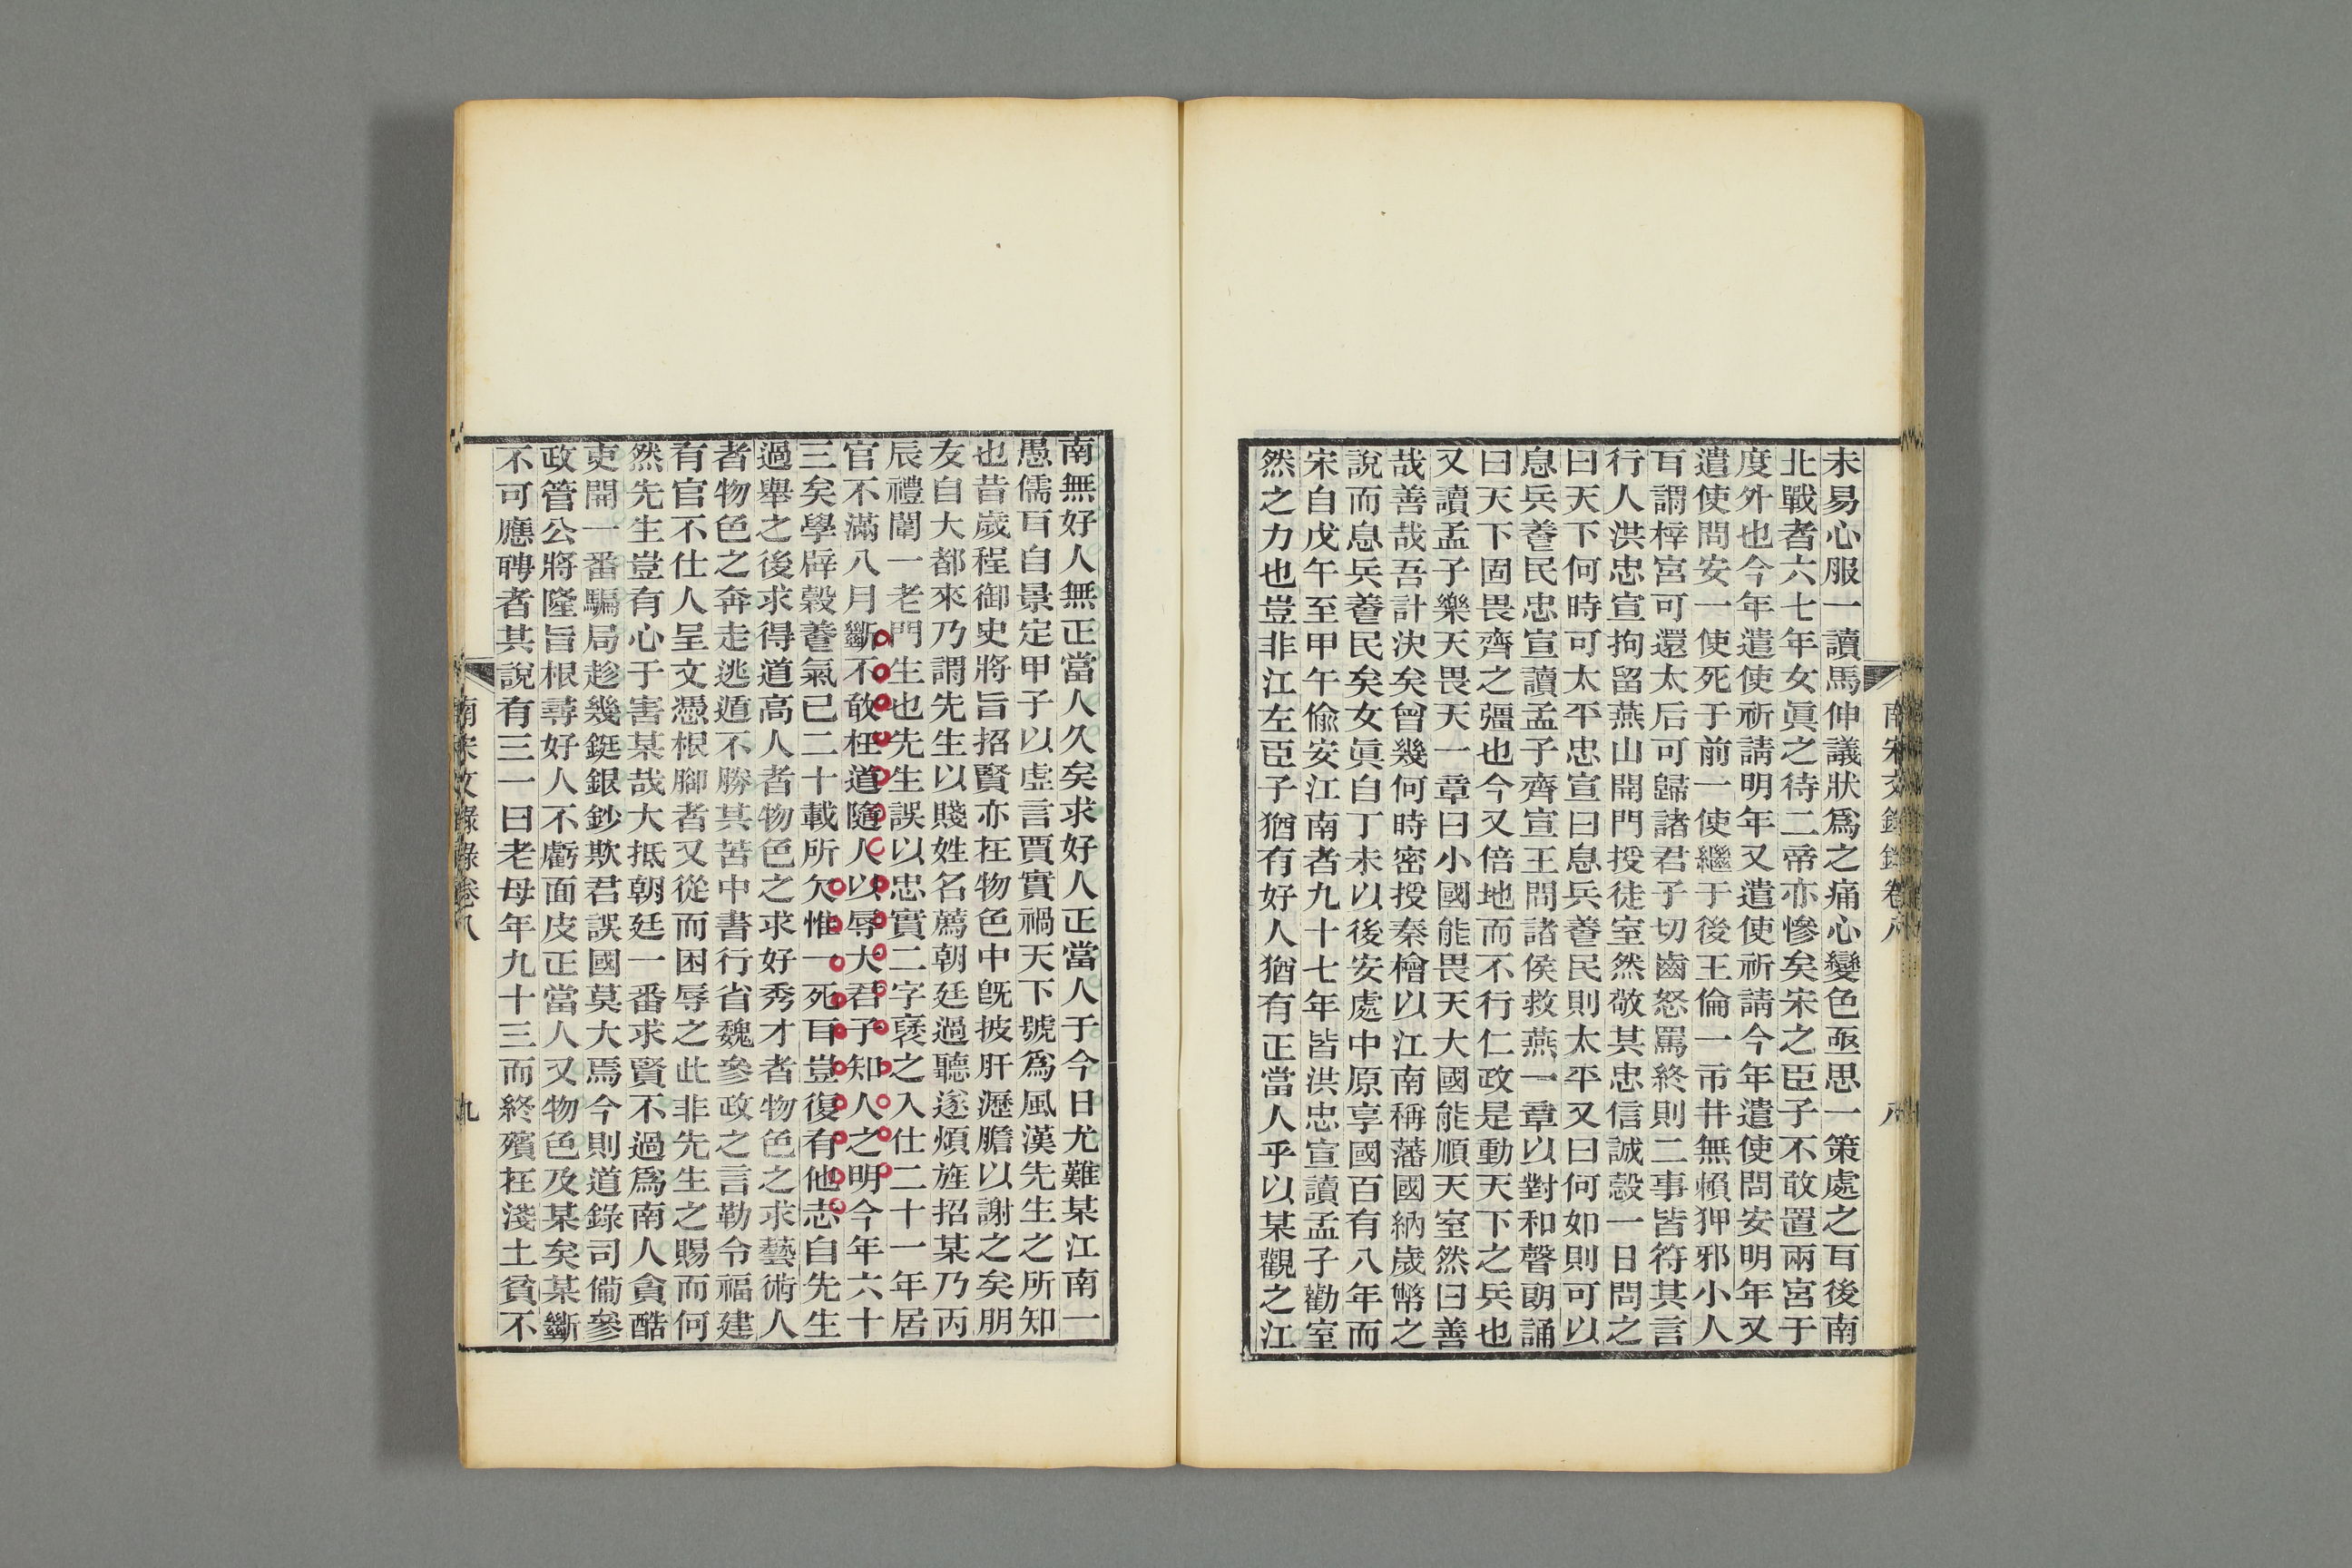 未易心服一讀馬伸議狀爲之痛心變色亟思一策處之百後南
北戰者六七年女眞之待二帝亦慘矣宋之臣子不敢置兩宮于
度外也今年遣使祈請明年又遣使祈請今年遣使問安明年又
遣使問安一使死于前一使繼于後王倫一市井無賴狎邪小人
百謂梓宮可還太后可歸諸君子切齒怒罵終則二事皆符其言
行人洪忠宣拘留燕山開門授徒室然敬其忠信誠慤一日問之
曰天下何時可太平忠宣曰息兵養民則太平又曰何如則可以
息兵養民忠宣讀孟子齊宣王問諸侯救燕一章以對和聲朗誦
曰天下固畏齊之彊也今又倍地而不行仁政是動天下之兵也
又讀孟子樂天畏天一章曰小國能畏天大國能順天室然曰善
哉善哉吾計決矣曾幾何時密授秦檜以江南稱藩國納歲幣之
說而息兵養民矣女眞自丁未以後安處中原享國百有八年而
宋自戊午至甲午偸安江南者九十七年皆洪忠宣讀孟子勸室
然之力也豈非江左臣子猶有好人猶有正當人乎以某觀之江
南宋文錄錄卷八
八
南無好人無正當人久矣求好人正當人于今日尤難某江南一
愚儒百自景定甲子以虛言賈實禍天下號爲風漢先生之所知
也昔歲程御史將旨招賢亦在物色中旣披肝瀝膽以謝之矣朋
友自大都來乃謂先生以賤姓名薦朝廷過聽遂煩旌招某乃丙
辰禮闈一老門生也先生誤以忠實二字褒之入仕二十一年居
官不滿八月斷不敢枉道隨人以辱大君子知人之明今年六十
三矣學辟穀養氣已二十載所欠惟一死百豈復有他志自先生
過舉之後求得道高人者物色之求好秀才者物色之求藝術人
者物色之奔走逃遁不勝其苦中書行省魏參政之言勒令福建
有官不仕人呈文憑根腳者又從而困辱之此非先生之賜而何
然先生豈有心于害某哉大抵朝廷一番求賢不過爲南人貪酷
吏開一番騙局趁幾鋌銀鈔欺君誤國莫大焉今則道錄司備參
政管公將隆旨根尋好人不虧面皮正當人又物色及某矣某斷
不可應聘者其說有三一曰老母年九十三而終殯在淺土貧不
南宋文錄錄卷八
九